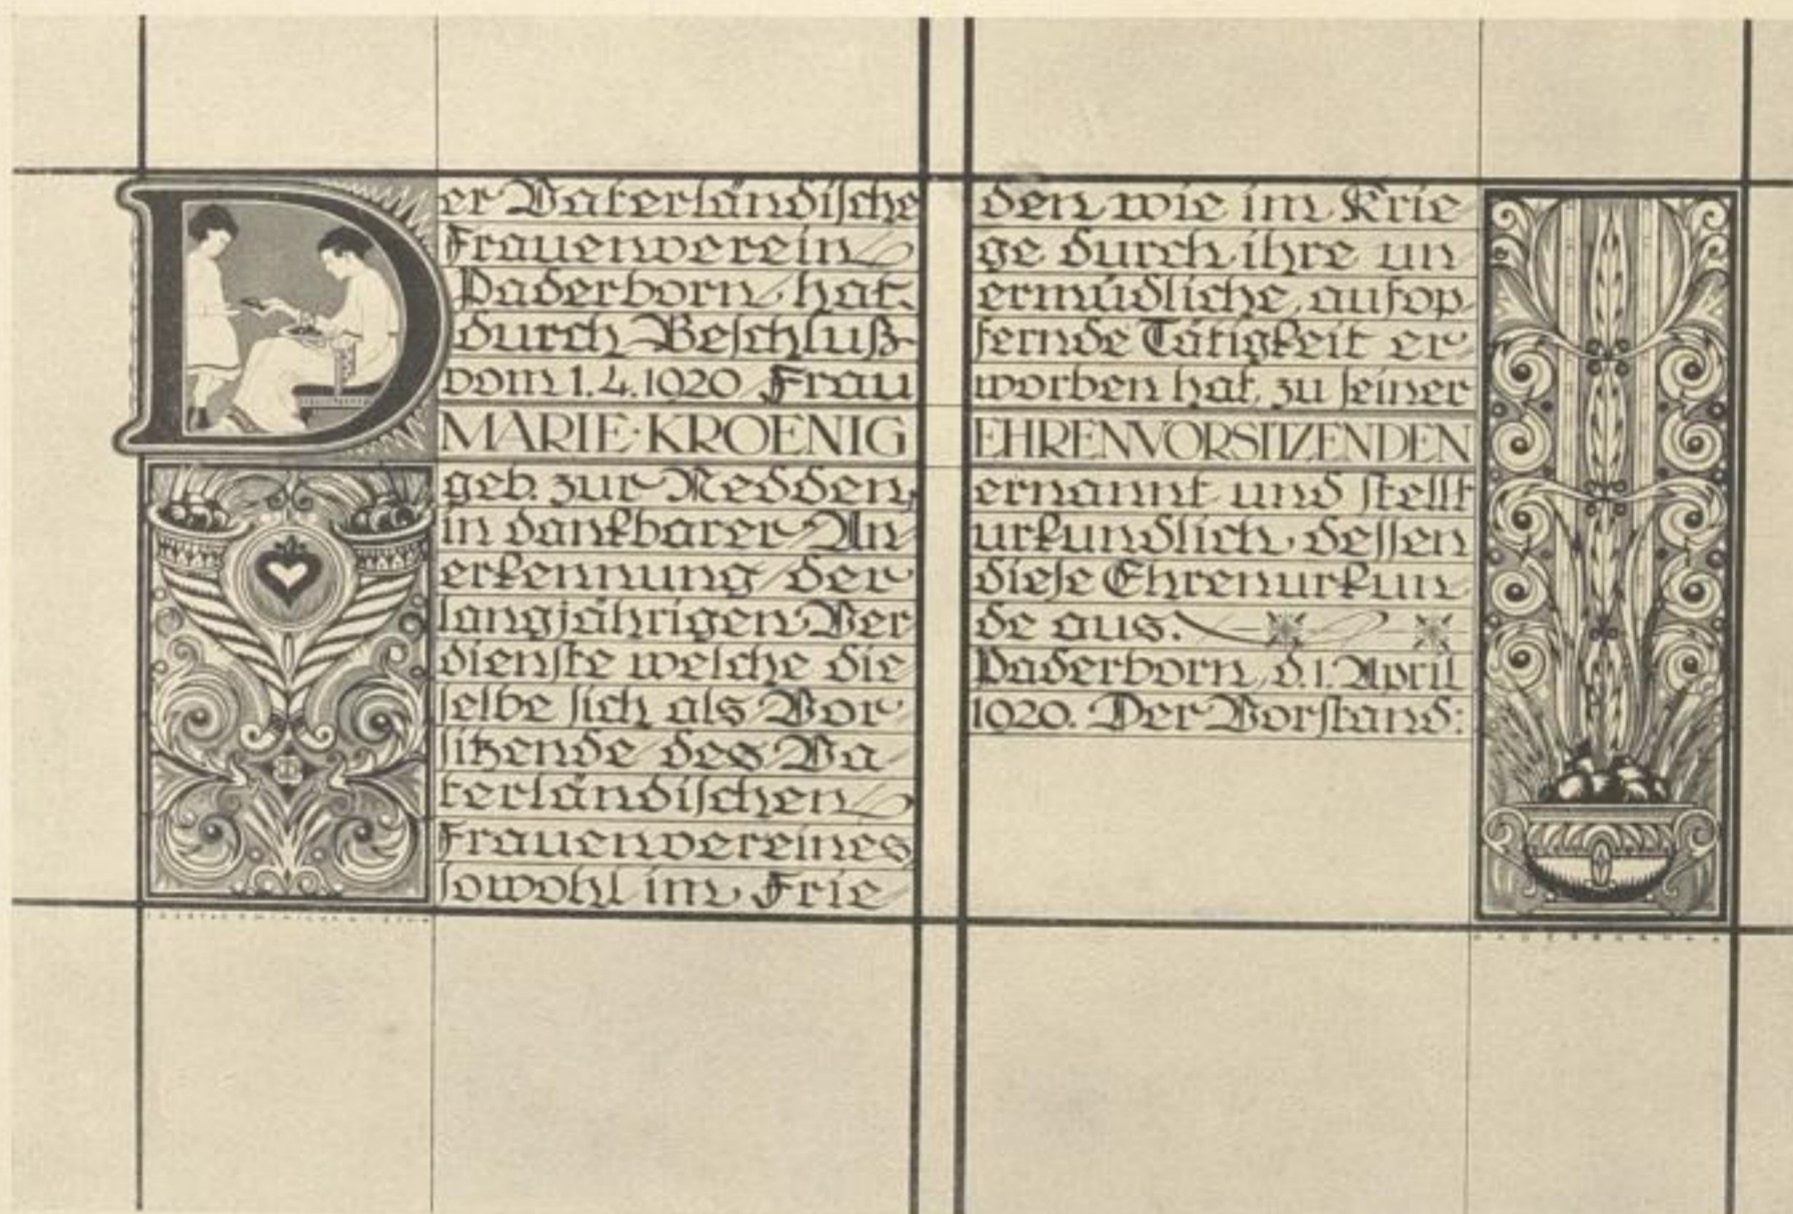 Der Vaterländische
Frauenverein
Paderborn hat
durch Beschluß
vom 1.4.1920 Frau
MARIE·KROENIG
geb. zur Nedden,
in dankbarer An-
erkennung der
langjährigen Ver
dienste welche die
selbe sich als Vor-
sitzende des Va-
terländischen
Frauenvereines
sowohl im Frie-
den wie im Krie-
ge durch ihre un
ermüdliche, aufop-
fernde Tätigkeit er-
worben hat, zu seiner
EHRENVORSITZENDEN
ernannt und stellt
urkundlich dessen
diese Ehrenurkun-
de aus.
Paderborn, d. 1. April
1920. Der Vorstand: